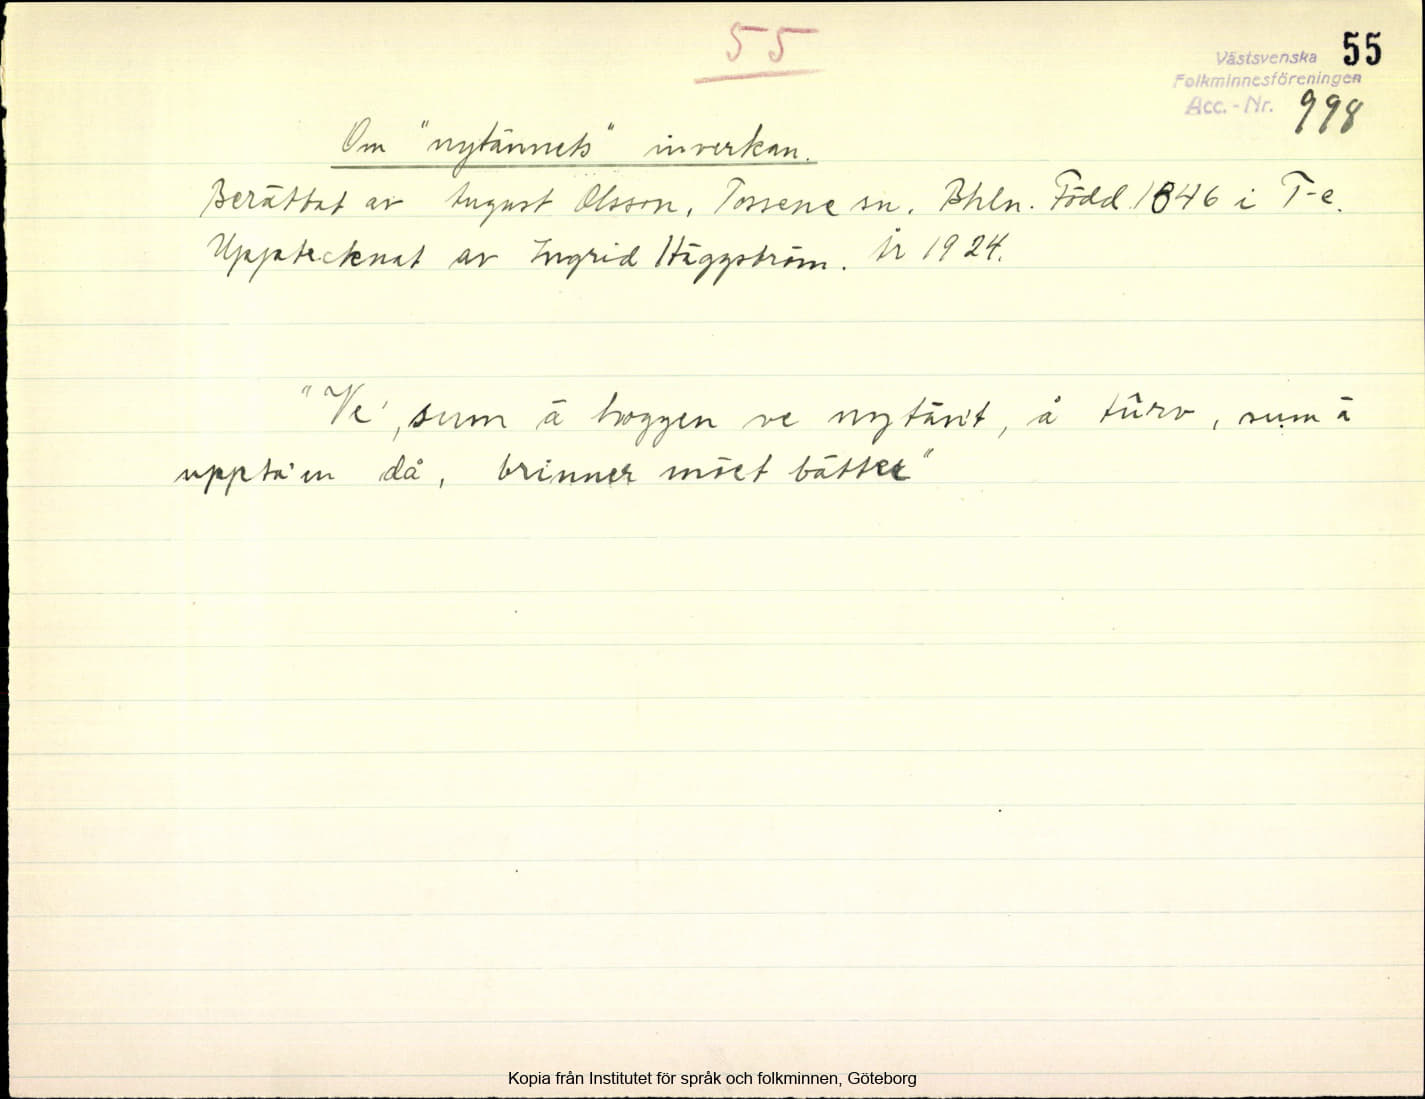 55
55
Västsvenska
Folkminnesföreningen
Acc.-Nr. 998
Om "nytännets" inverkan.
Berättat av August Olsson, Tossene sn. Bhln. Född 1846 i T-e.
Upptecknat av Ingrid Häggström. År 1924.
"Ve', sum ä hoggen ve nytänt, å tûrv, sum ä
uppta'en då, brinner möet bätter"
Kopia från Institutet för språk och folkminnen, Göteborg